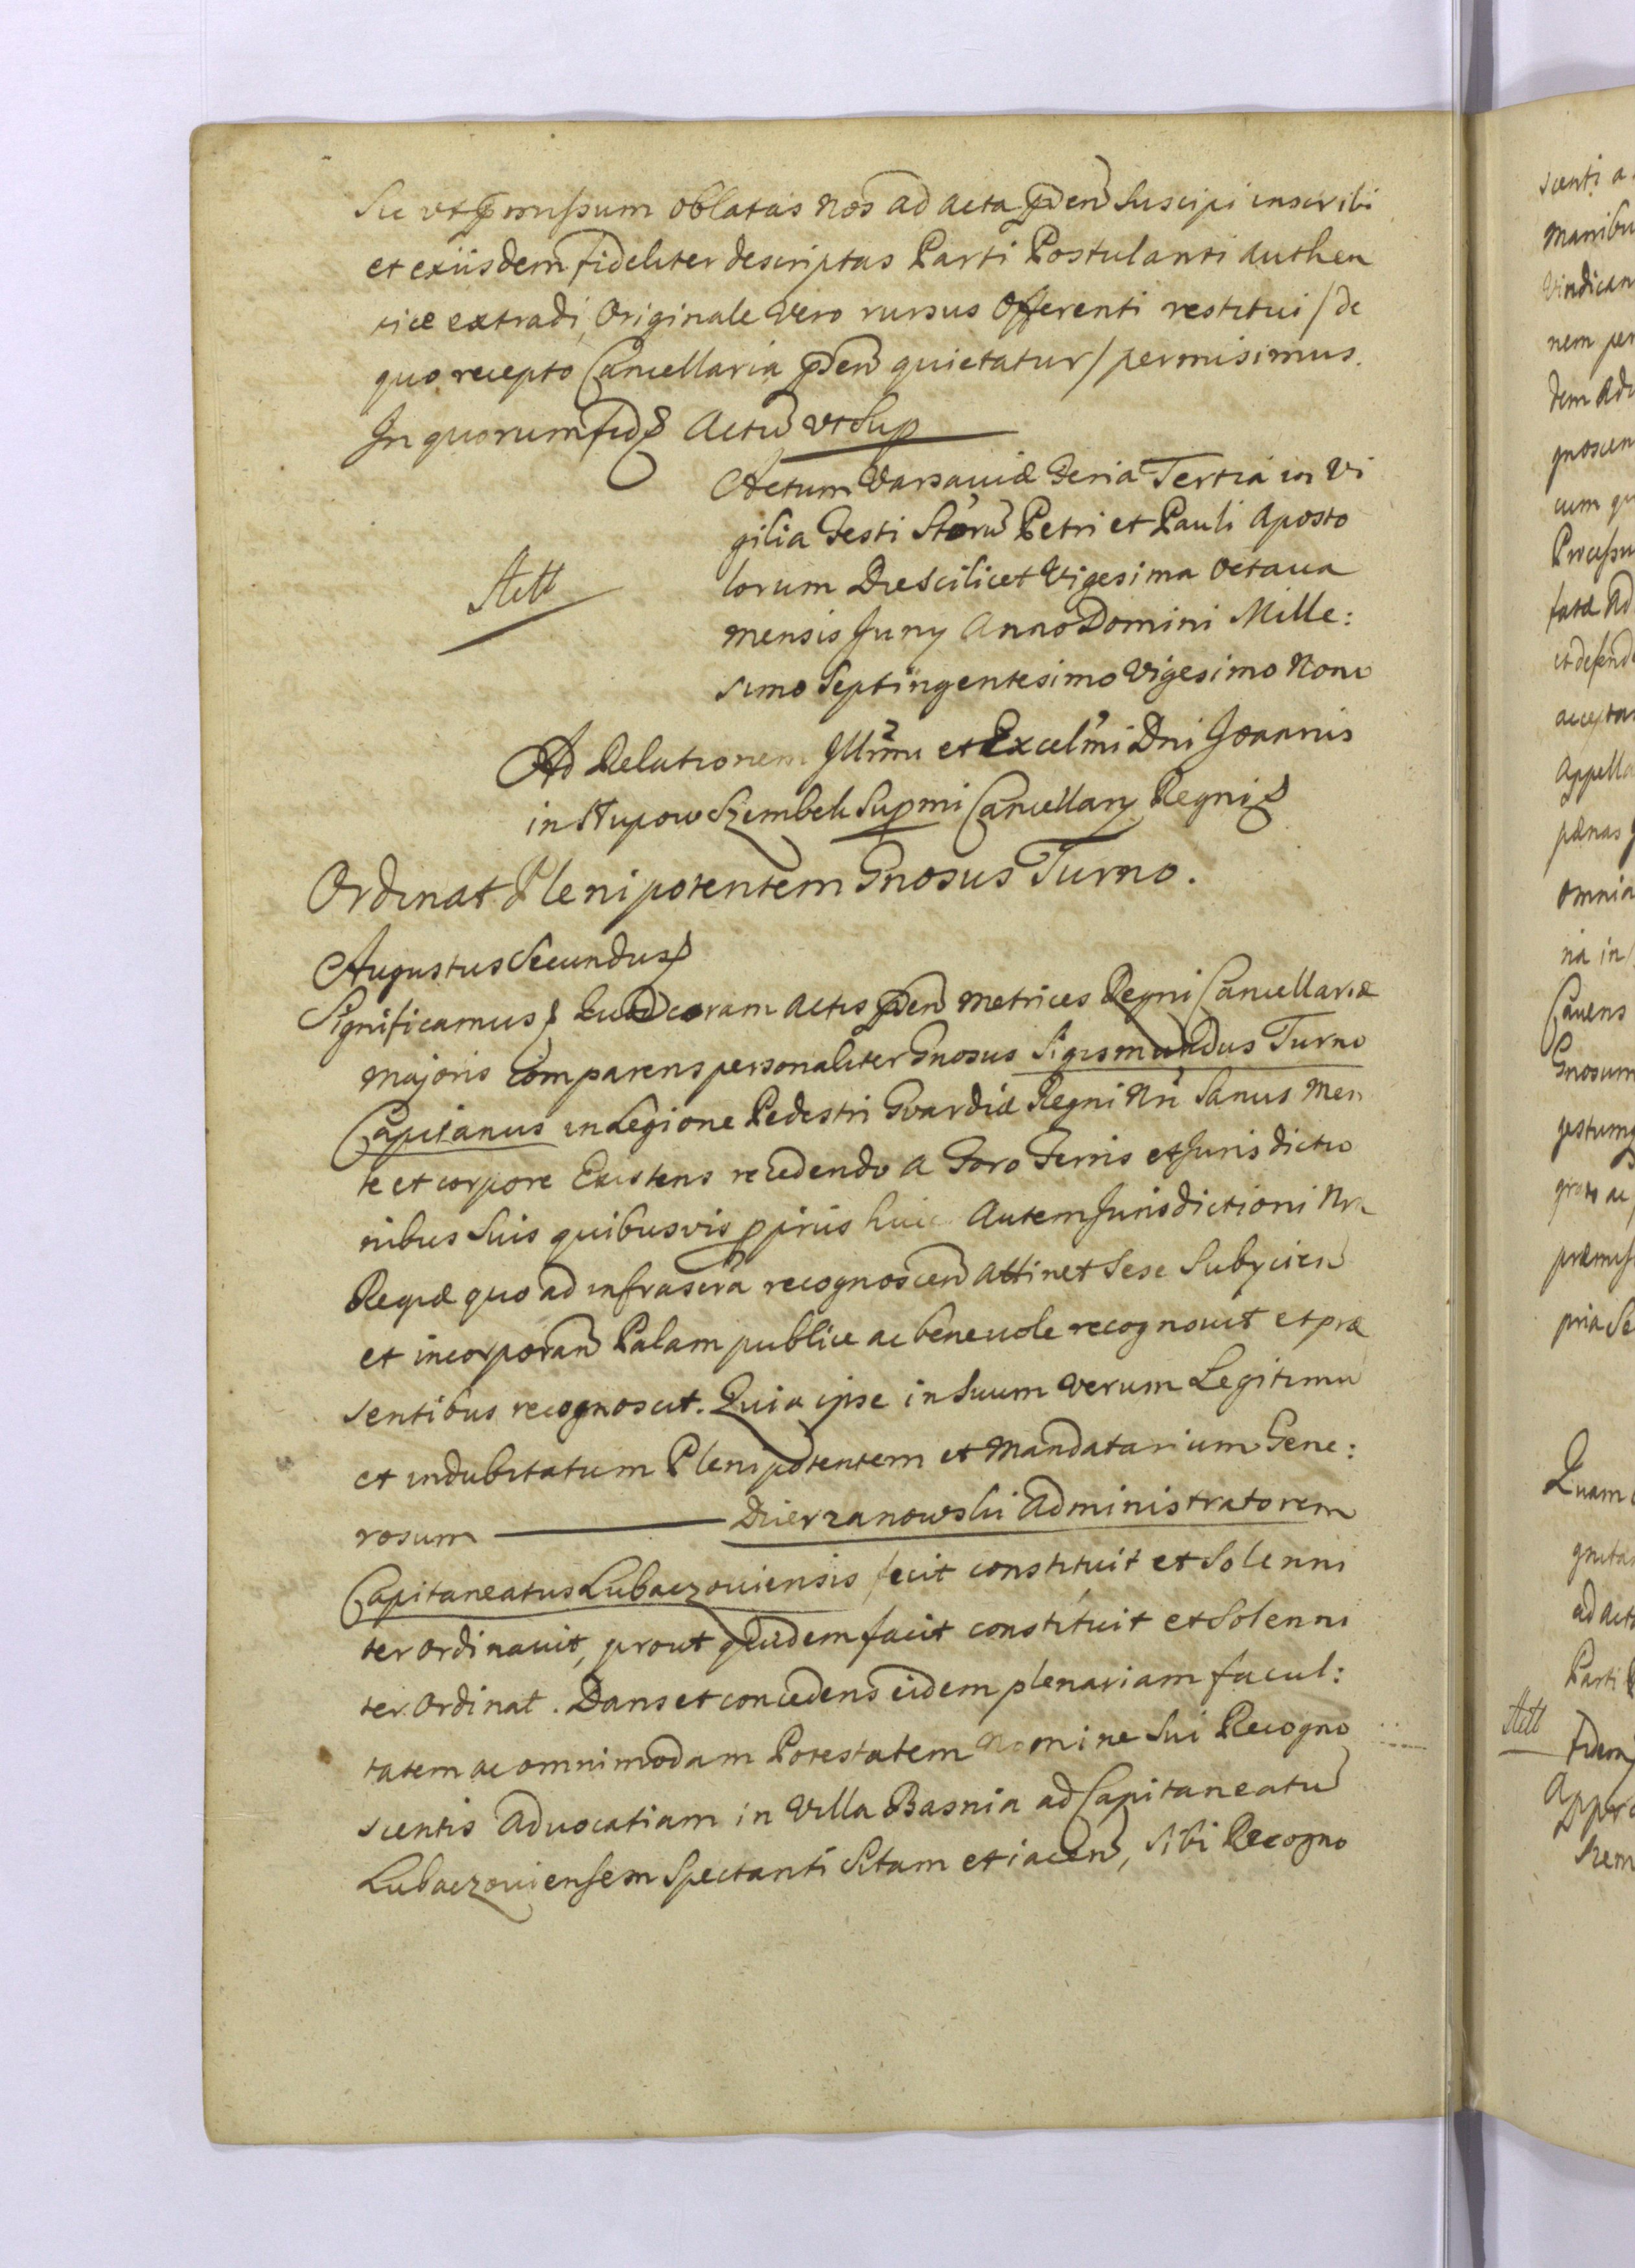 Sic ut p̄missum oblatas Nos ad acta p̄den̄ Suscipi inscribi
et ex iisdem fideliter descriptas Parti Postulanti authen
tice extradi, Originale Vero rursus Offerenti restitui / de
quo recepto Cancellaria p̄den̄ quietatur / permisimus.
In quorum fid Actū ut Sup
Actum Varsaviæ Feria Tertia in Vi
gilia Festi Stōrū Petri et Pauli Aposto
lorum Die Scilicet Vigesima Octava
mensis Juny Anno Domini Mille:
simo Septingentesimo Vigesimo Nono
Ad Relationem Illr̄mi et Excell̄mi Dni Joannis
in Słupow Szembek Sup̄mi Cancellary Regni
Ordinat Plenipotentem Gnosus Turno.
Augustus Secundus
Significamus Quod coram Actis p̄den̄ Metrices Regni Cancellariæ
Majoris Comparens personaliter Gnosus Sigismundus Turno
Capitanus in Legione Pedestri Gvardiæ Regni Nri Sanus Men
te et corpore Existens recedendo a Foro Terris et Jurisdictio
nibus Suis quibusvis p̱prius huic Autem Jurisdictioni Nr̄æ
Regiæ quo ad infrascra recognoscen̄ Attinet Sese Subycien̄
et incorporan̄ Palam publice ac benevole recognovit et præ
sentibus recognoscit. Quia ipse in Suum Verum Legitimū
et indubitatum Plenipotentem et Mandatarium Gene:
rosum ——— Dzierzanowski Administratorem
Capitaneatus Lubaczoviensis fecit constituit et Solenni
ter Ordinavit, prout quidem facit constituit et Solenni
ter Ordinat. Dans et concedens eidem plenariam facul:
tatem ac omnimodam Potestatem Nomine Sui Recogno
scentis Advocatiam in Villa Basnia ad Capitaneatū
Lubaczoviensem Spectanti Sitam et iacen̄, Sibi Recogno